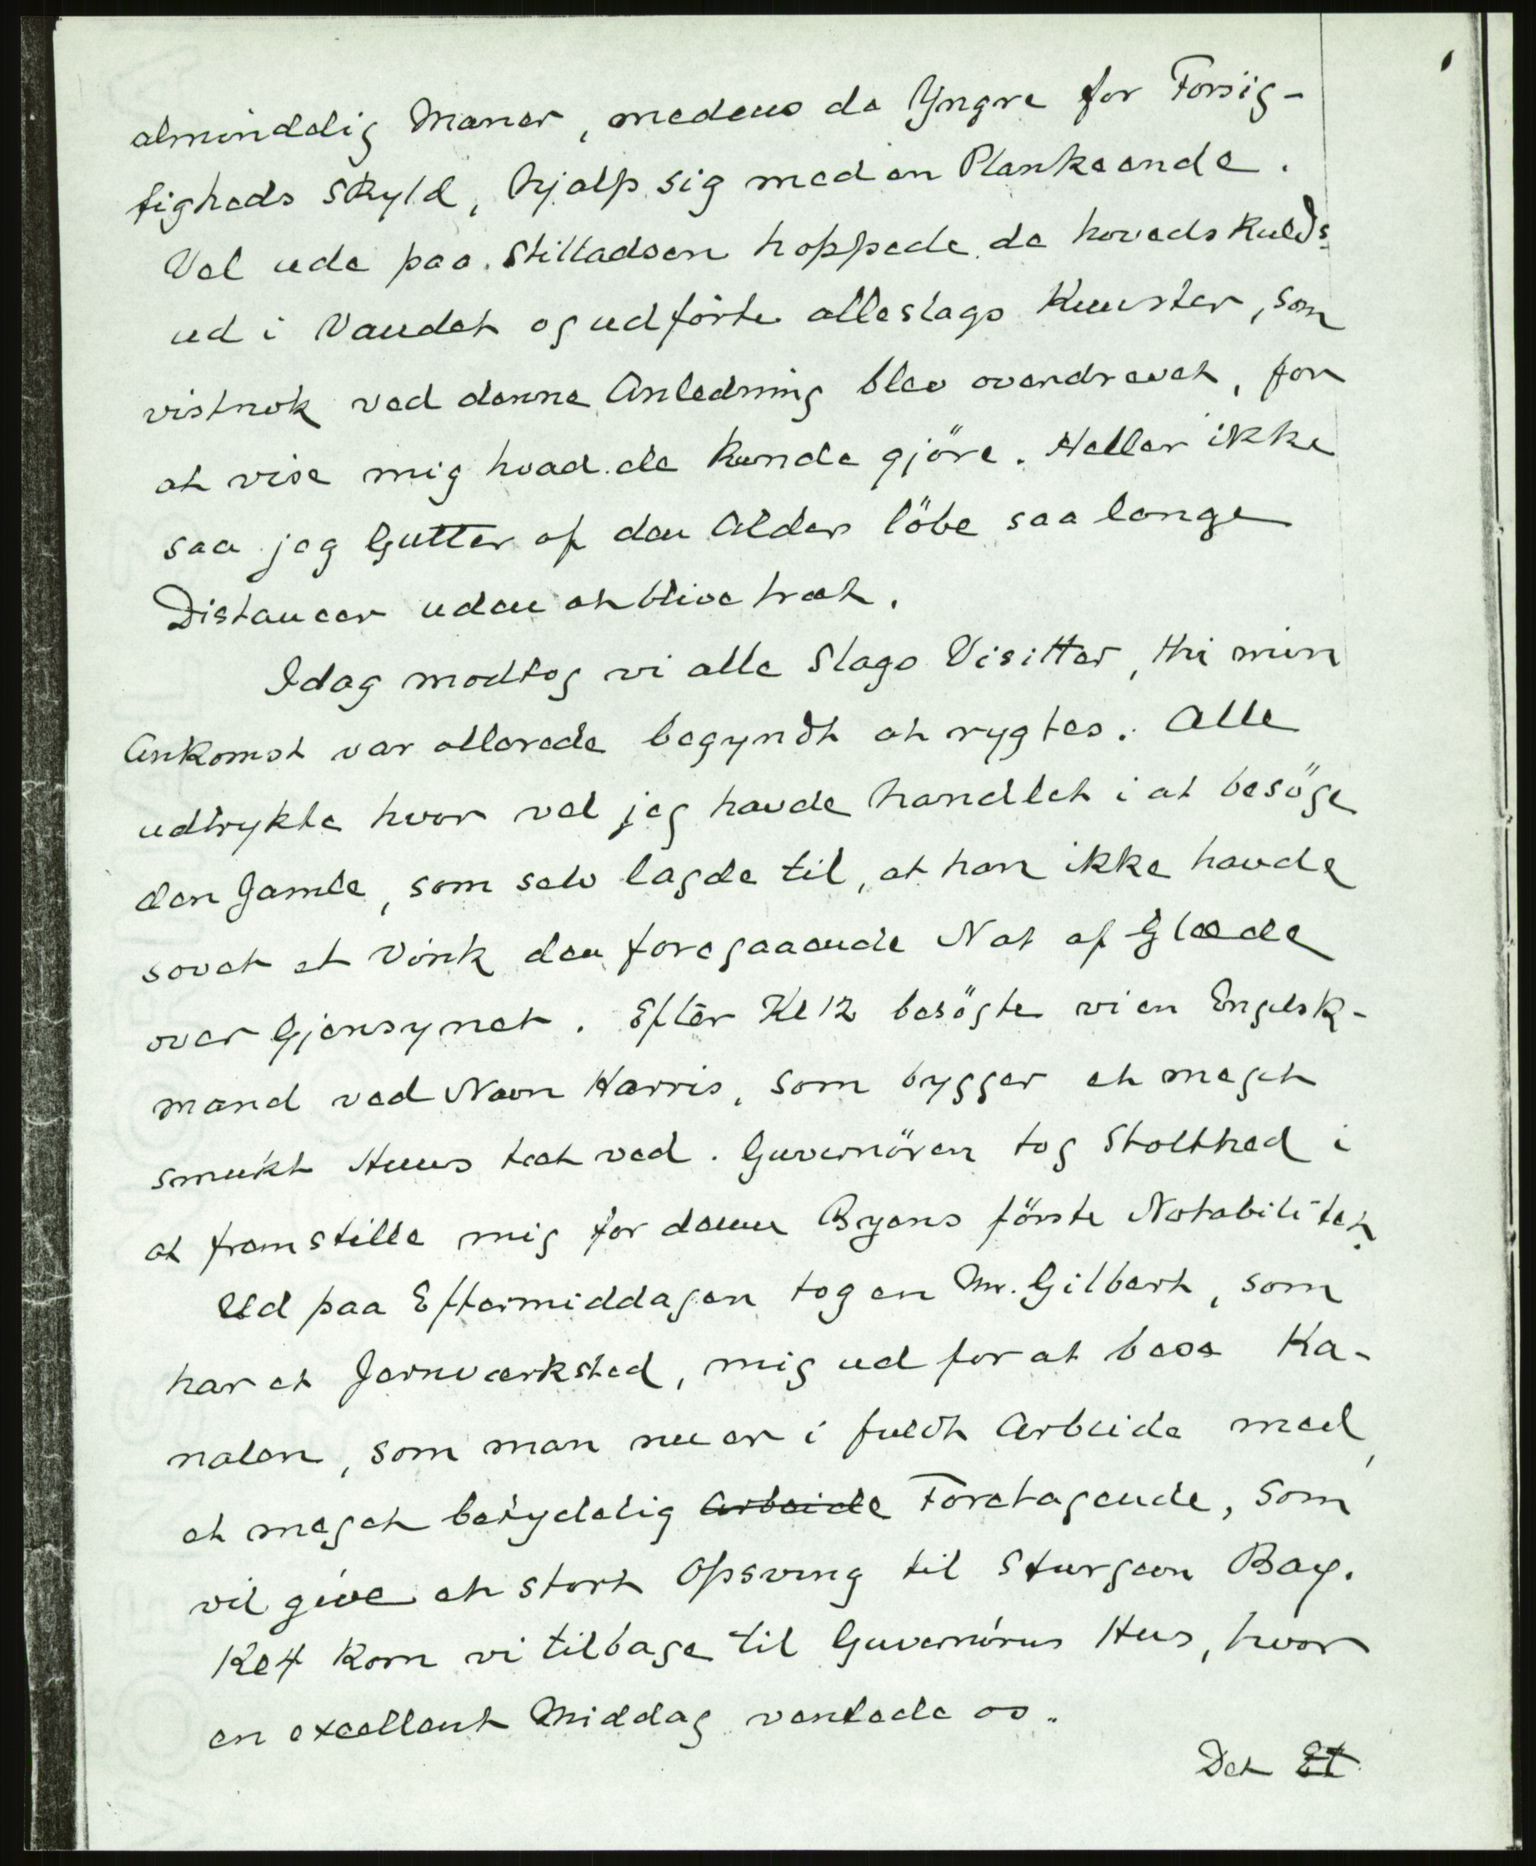 almindelig Maner, medens de Yngre for Forsig-
tigheds Skyld, hjalp sig med en Plankeende.
Vel ude paa Stilladsen hoppede de hovedskulds
ud i Vandet og udförte alleslags Kunster, som
vistnok ved denne Anledning blev overdrevet, for
at vise mig hvad de kunde gjöre. Heller ikke
saa jeg Gutter af den Alder löbe saa lange
Distancer uden at blive træt.
Idag modtog vi alle Slags Visitter, thi min
Ankomst var allerede begyndt at rygtes. Alle
udtrykte hvor vel jeg havde handlet i at besöge
den Gamle, som selv lagde til, at han ikke havde
sovet et Vink den foregaaende Nat af Glæde
over Gjensynet. Efter Kl 12 besögte vi en Engelsk-
mand ved Navn Harris, som bygger et meget
smukt Huus tæt ved. Guvernören tog Stolthed i
at fremstille mig for denne Byens förste Notabilitet.
Ud paa Eftermiddagen tog en Mr. Gilbert, som
har et Jernværksted, mig ud for at bese Ka-
nalen, som man nu er i fuldt Arbeide med,
et meget betydelig Arbeide Foretagende, som
vil give et stort Opsving til Sturgeon Bay.
Kl 4 kom vi tilbage til Guvernörens Hus, hvor
en excellent Middag ventede os.
Det Et